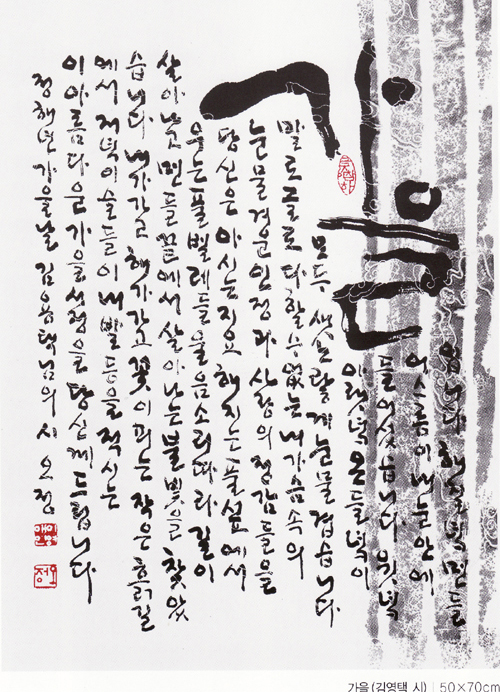 가을
입니다 해질녘 먼 들
어스름이 내 눈 안에
들어섰습니다 윗녘
아랫녘 온 들녘이
모두 샛노랗게 눈물겹습니다
말로 글로 다할 수 없는 내 가슴 속의
눈물겨운 인정과 사랑의 정감들을
당신은 아시는지요 해지는 풀섶에서
우는 풀벌레들 울음소리 따라 길이
살아나고 먼 들 끝에서 살아나는 불빛을 찾았
습니다 내가 가고 해가 가고 꽃이 피는 작은 흙길
에서 저녁 이슬들이 내 발등을 적시는
이 아름다운 가을 서정을 당신께 드립니다
정해년 가을날 김용택님의 시 오정
가을(김영택 시) | 50×70cm